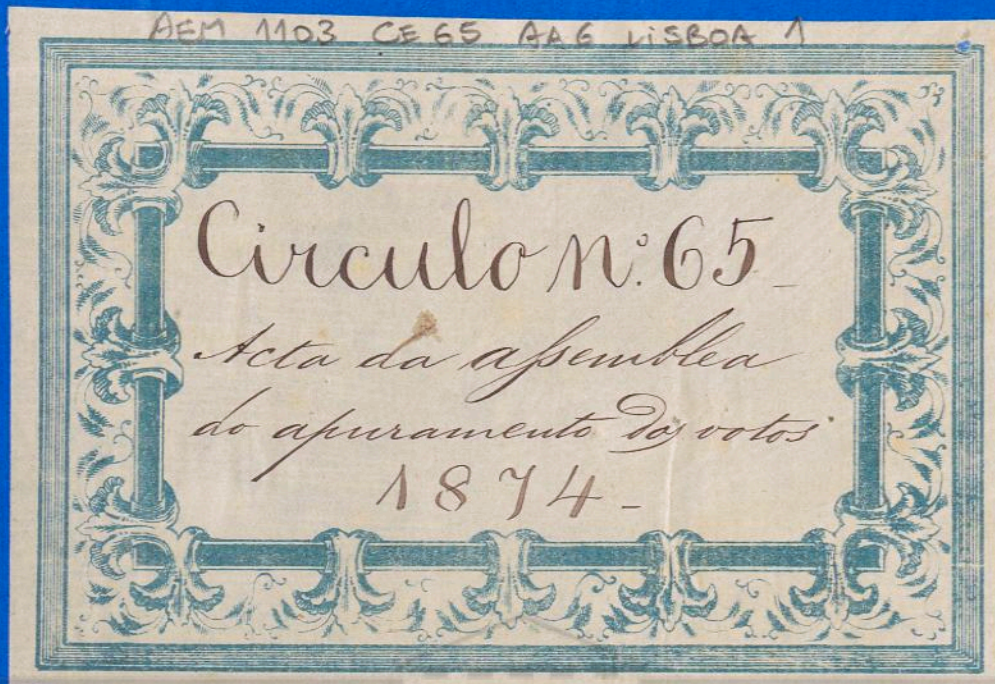 AEM 1103 CE 65 AAG LISBOA 1
Circulo N.º 65-
Acta da assemblea
do apuramento dos votos
1874-